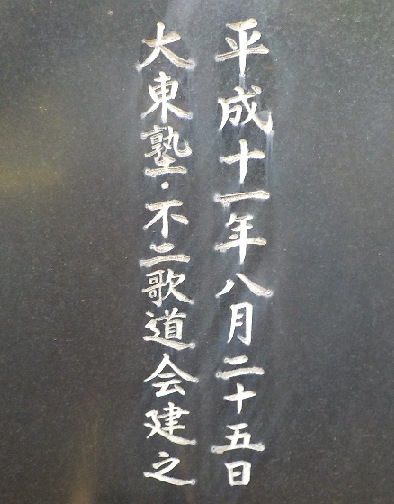 平成十一年八月二十五日
大東塾・不二歌道会建之